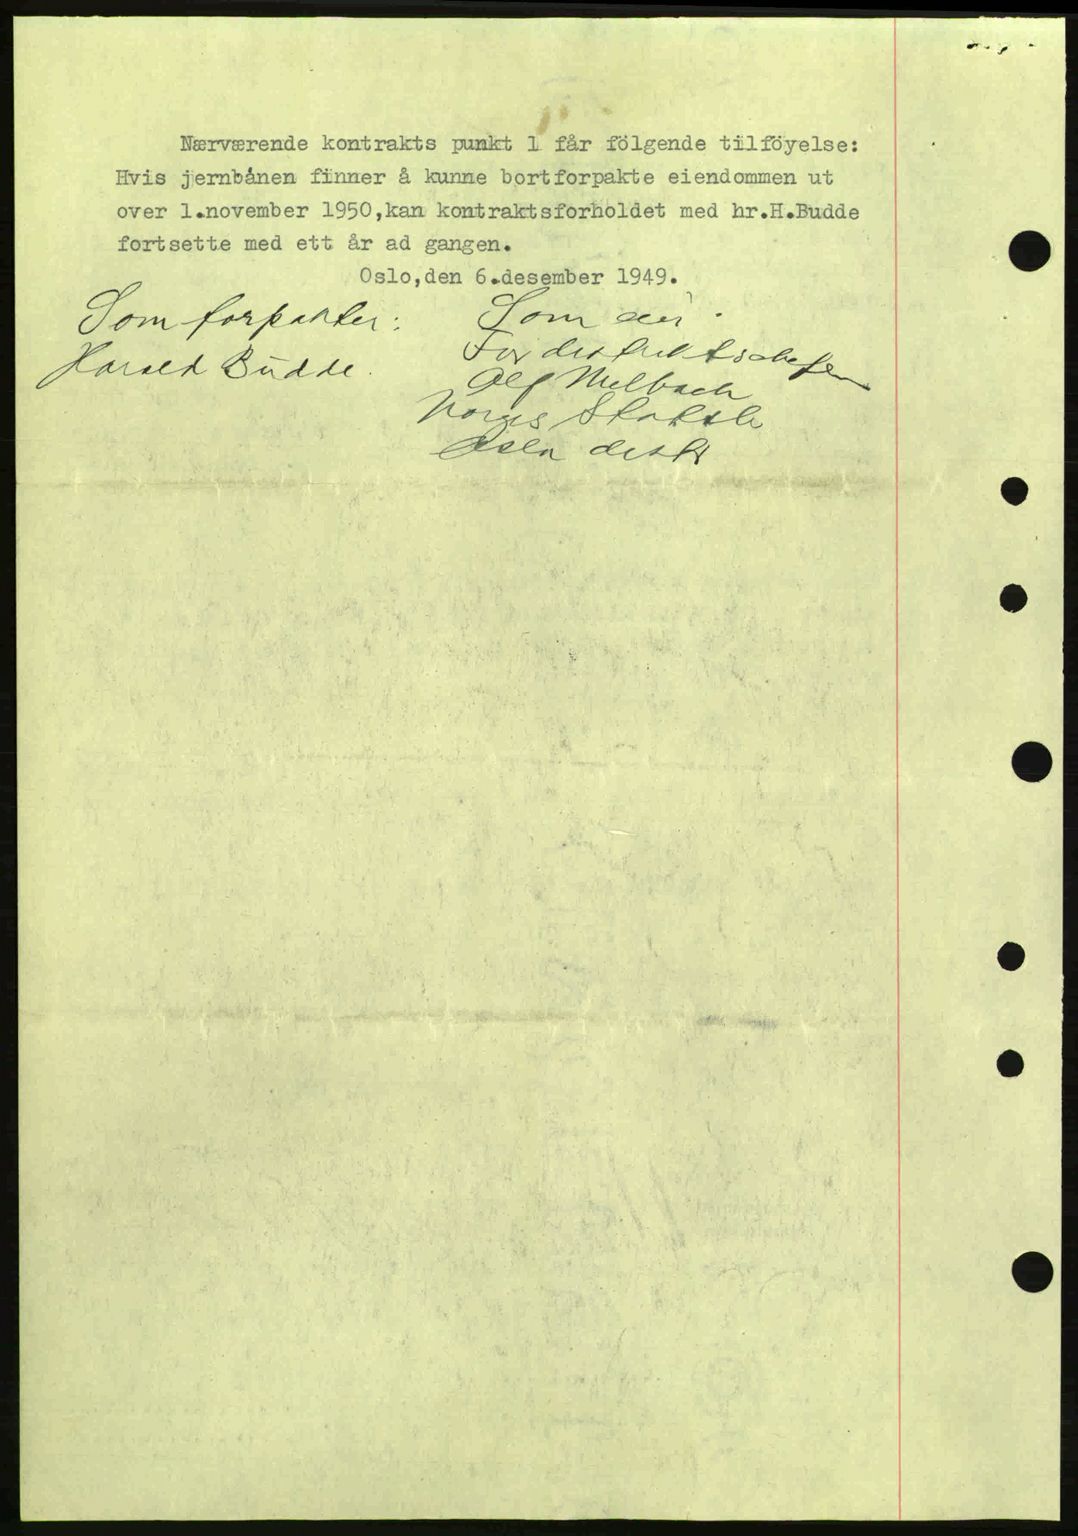 Nærværende kontrakts punkt 1 får fölgende tilföyelse:
Hvis jernbånen finner å kunne bortforpakte eiendommen ut
over 1.november 1950,kan kontraktsforholdet med hr.H.Budde
fortsette med ett år ad gangen.
Oslo,den 6.desember 1949.
Som forpakter:
Harald Budde.
Som eier
For distriktschefen
Alf Melbach
Norges Statsb
Oslo distr